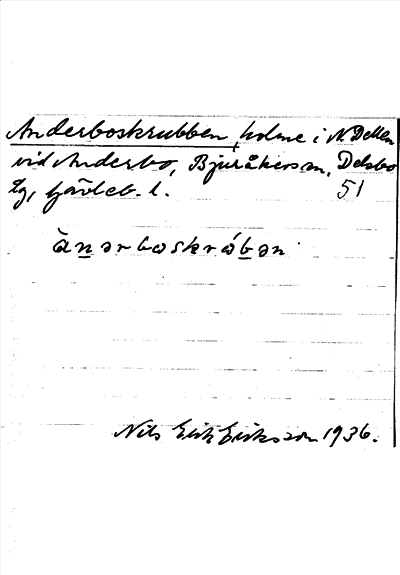 Anderboskrubben, holme i N. Dellen
vid Anderbo, Bjuråkers sn, Delsbo
tg, Gävleb. l. 51
ànərboskrób̲ən
Nils Erik Eriksson 1936.